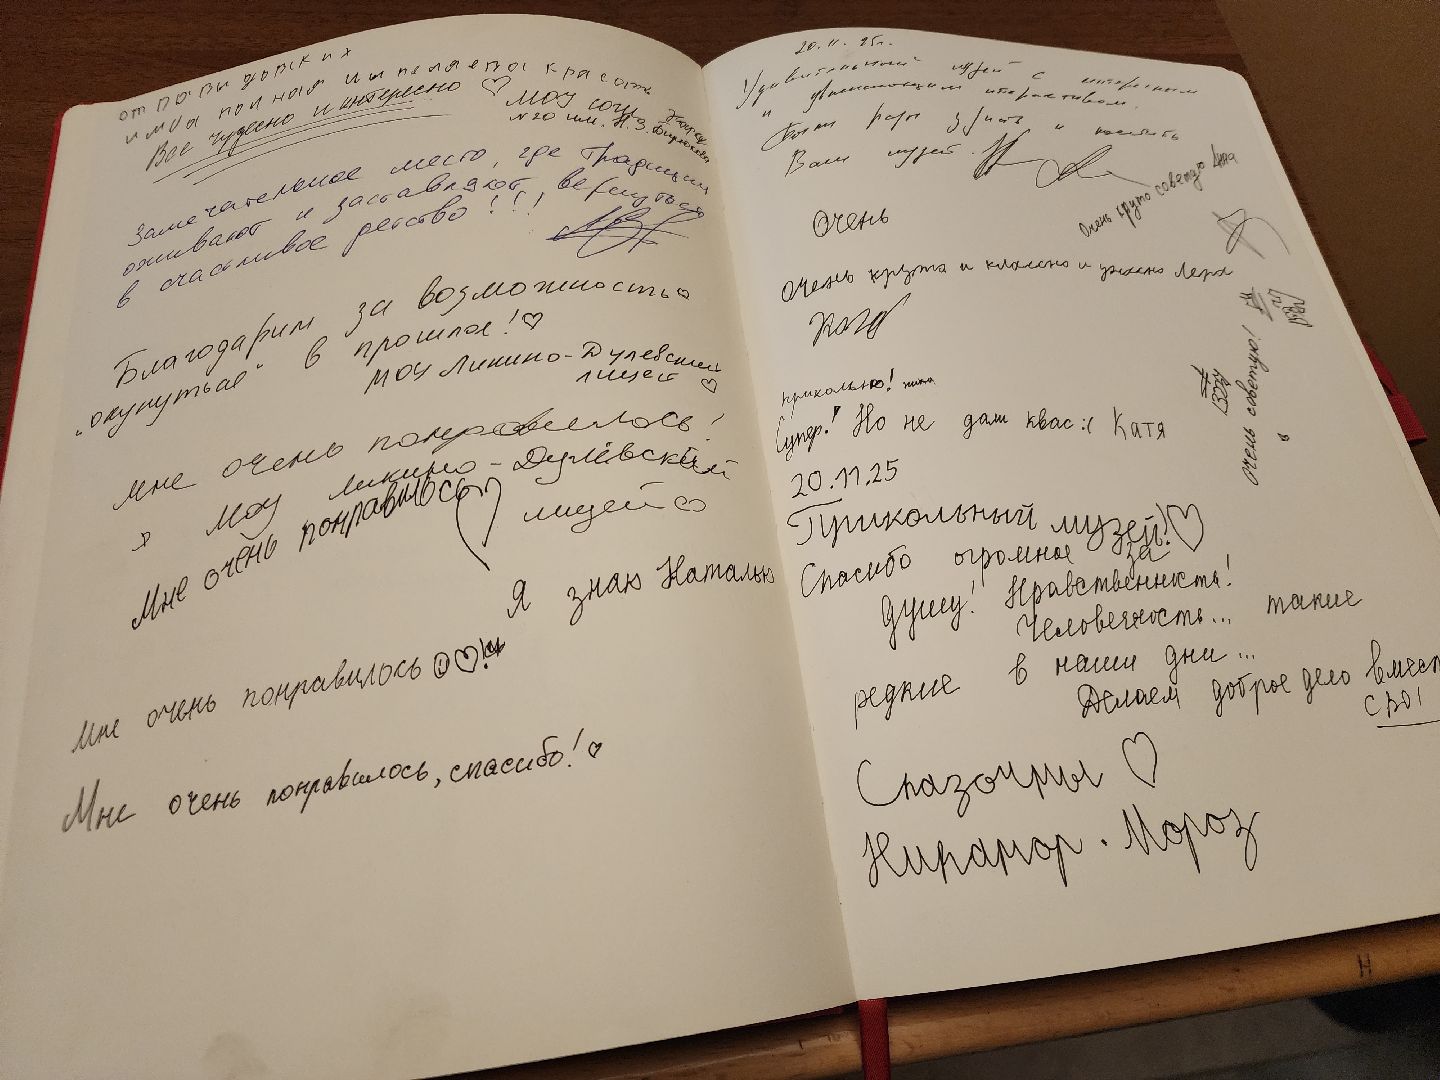 от Павы
Все чудесно и интересно ♡
МОУ СОШ
№20 им. Н.З. Бирюкова
Замечательное место, где традиции
оживают и заставляют вернуться
в счастливое детство!!!
Благодарим за возможность
"окунуться" в прошлое!♡
МОУ Ликино-Дулевский
лицей ♡
мне очень понравилось!
МОУ Ликино-Дулёвский
лицей
Мне очень понравилось
Я знаю Наталью
мне очень понравилось ☺♡!
Мне очень понравилось, спасибо!♡
20.11.25г.
Удивительный музей с интересным
и интерактивом.
Были рады узнать и посетить
Ваш музей.
Очень круто советую Анна
Очень
очень крута и классно и ужасно Лера
прикольно!
Супер! Но не дали квас :( Катя
очень советую!
20.11.25
Прикольный музей!♡
Спасибо огромное за
душу! Нравственность!
Человечность... такие
редкие в наши дни...
Делаем доброе дело вмест
Сказочры ♡
Никамор. Мороз